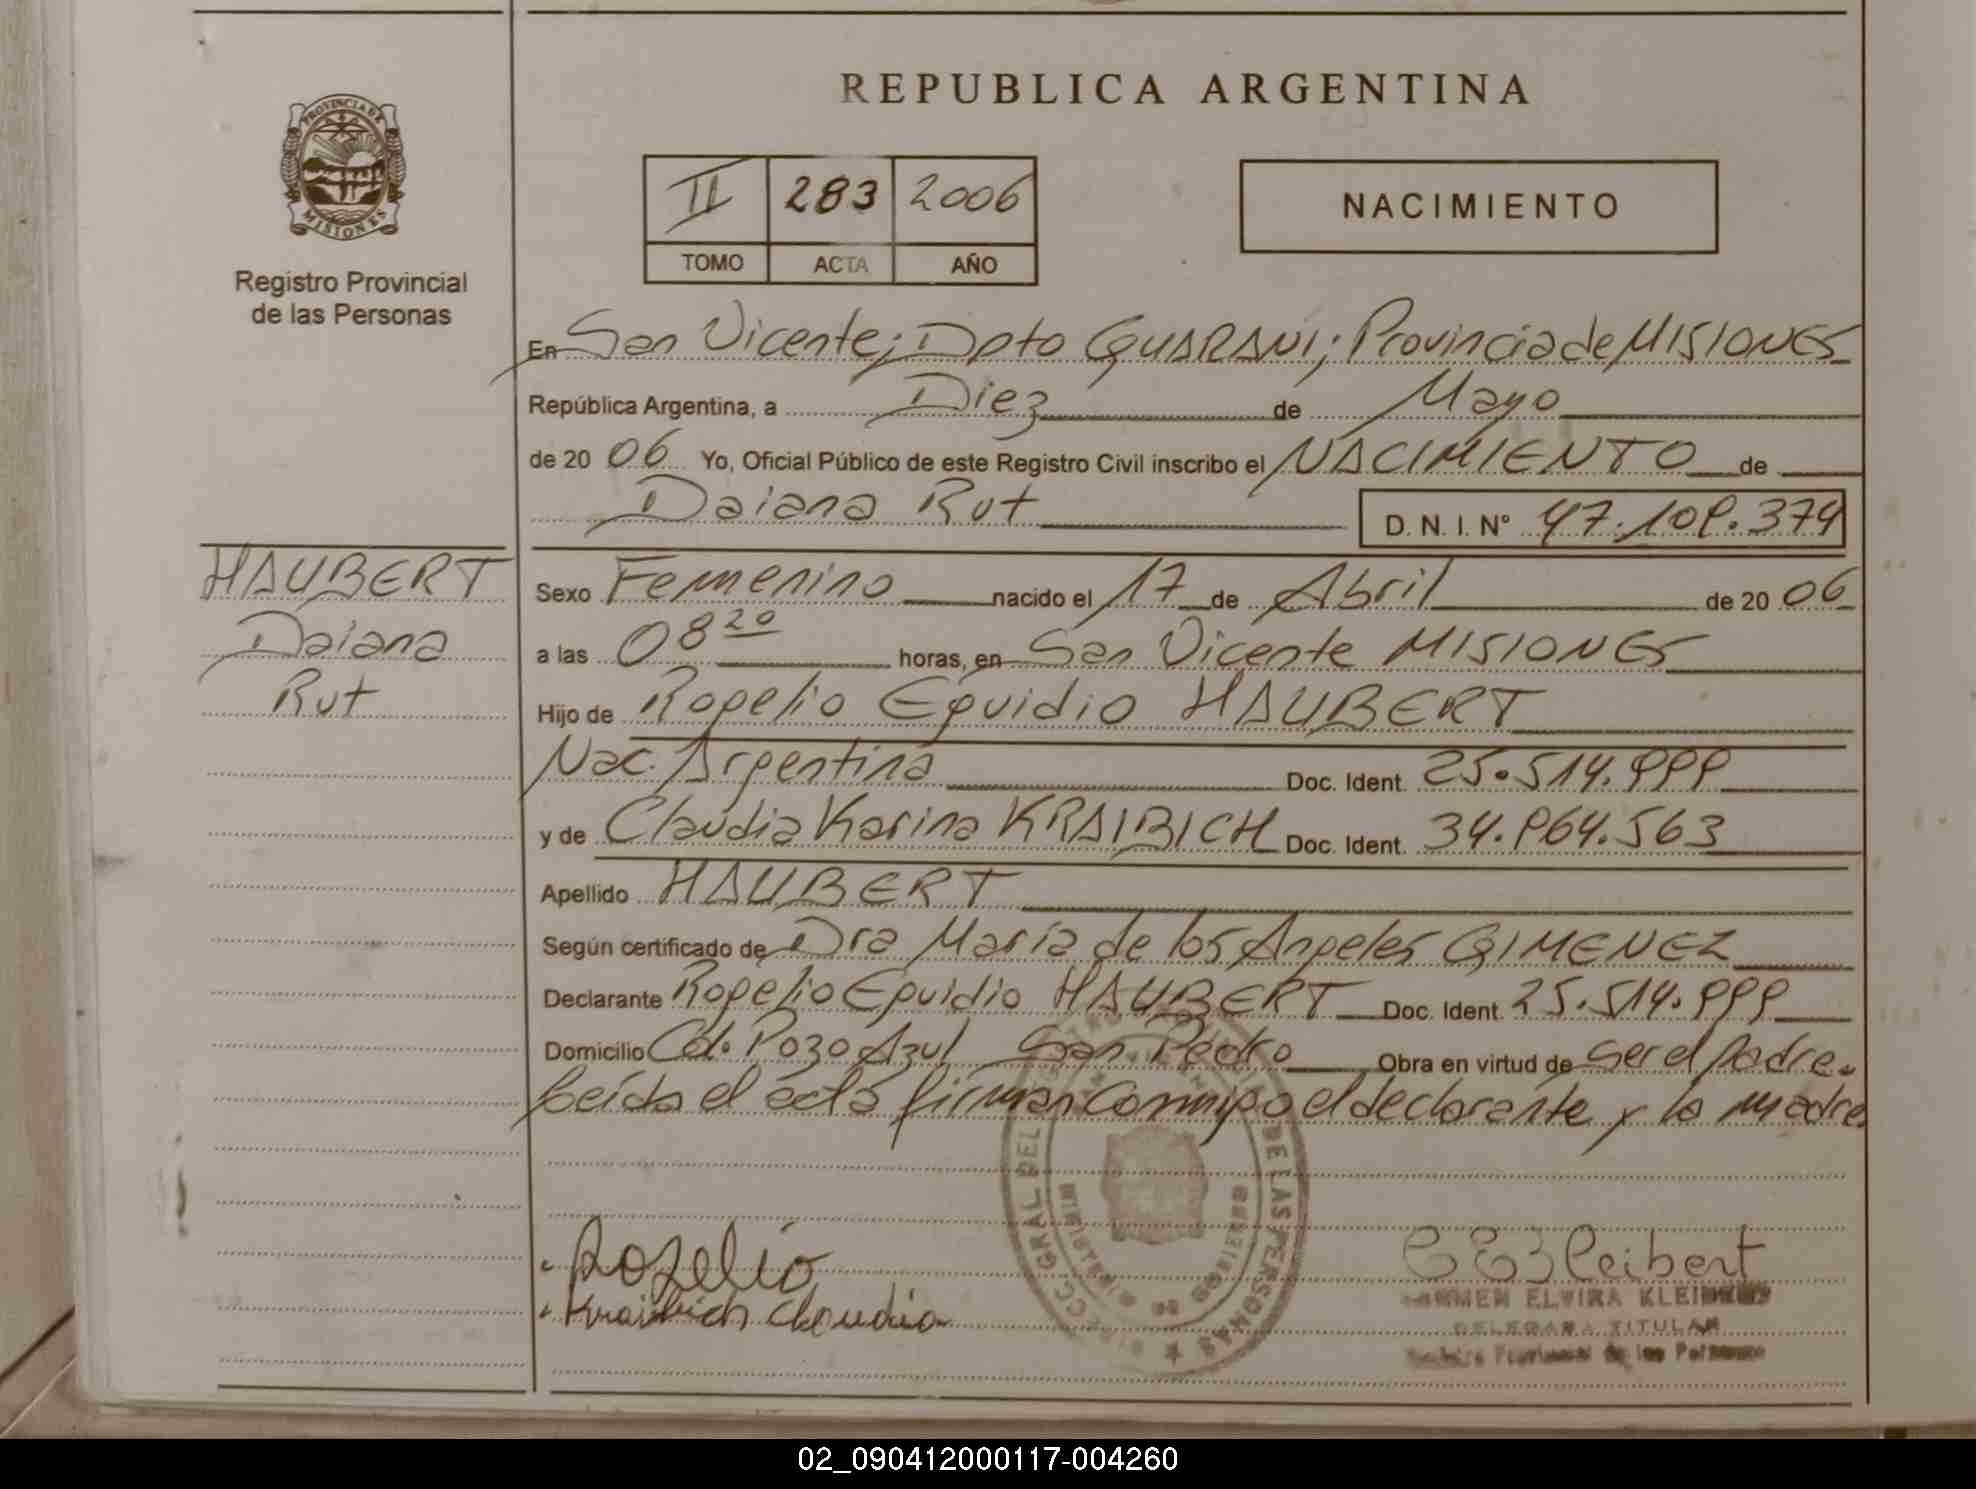 REPUBLICA ARGENTINA
PROVINCIA DE MISIONES
Registro Provincial
de las Personas
II 283 2006
TOMO ACTA AÑO
NACIMIENTO
En San Vicente; Dpto GUARANI; Provincia de MISIONES
República Argentina, a Diez de Mayo
de 20 06 Yo, Oficial Público de este Registro Civil inscribo el NACIMIENTO de
Daiana Rut D. N. I. Nº 47.109.379
HAUBERT
Daiana
Rut
Sexo Femenino nacido el 17 de Abril de 20 06
a las 08 20 horas, en San Vicente MISIONES
Hijo de Rogelio Eguidio HAUBERT
Nac. Argentina Doc. Ident. 25.514.999
y de Claudia Karina KRAIBICH Doc. Ident. 34.964.563
Apellido HAUBERT
Según certificado de Dra María de los Angeles GIMENEZ
Declarante Rogelio Eguidio HAUBERT Doc. Ident. 25.514.999
Domicilio Col. Pozo Azul San Pedro Obra en virtud de ser el padre.
Leída el acta firman conmigo el declarante y la madre
DE LAS PERSONAS
MINISTERIO DE GOBIERNO
Rogelio
Kraibich Claudia
CARMEN ELVIRA
DELEGADA TITULAR
Registro Provincial de las Personas
02_090412000117-004260